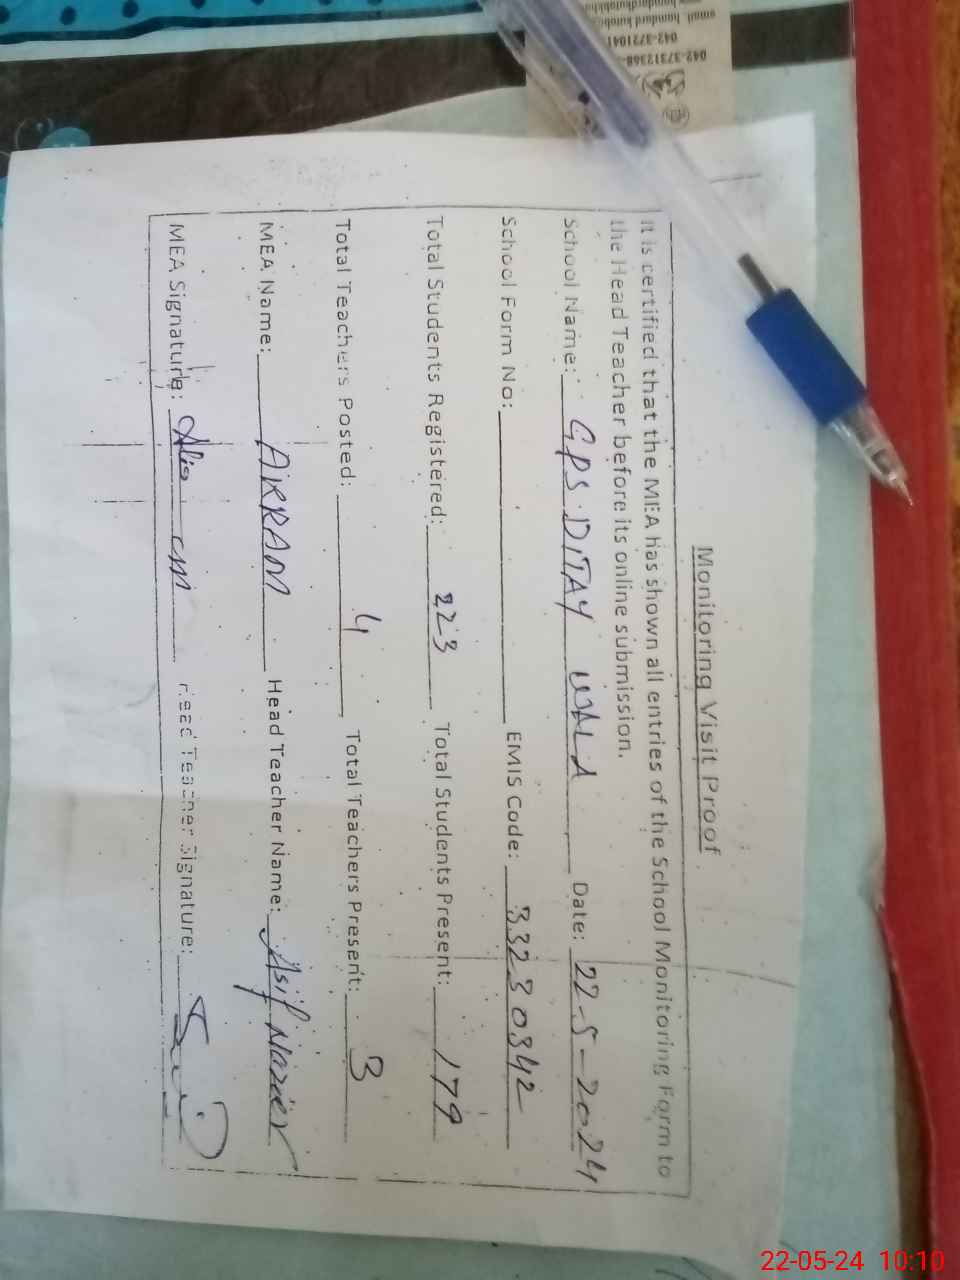 Monitoring Visit Proof
It is certified that the MEA has shown all entries of the School Monitoring Form to
the Head Teacher before its online submission.
School Name: GPS DITAY WALA Date: 22-5-2024
School Form No: EMIS Code: 33230342
Total Students Registered: 223 Total Students Present: 179
Total Teachers Posted: 4 Total Teachers Present: 3
MEA Name: AKRAM Head Teacher Name: Asif Nazeer
MEA Signature: Head Teacher Signature:
042-37312368-
042-3721041
email
22-05-24 10:10